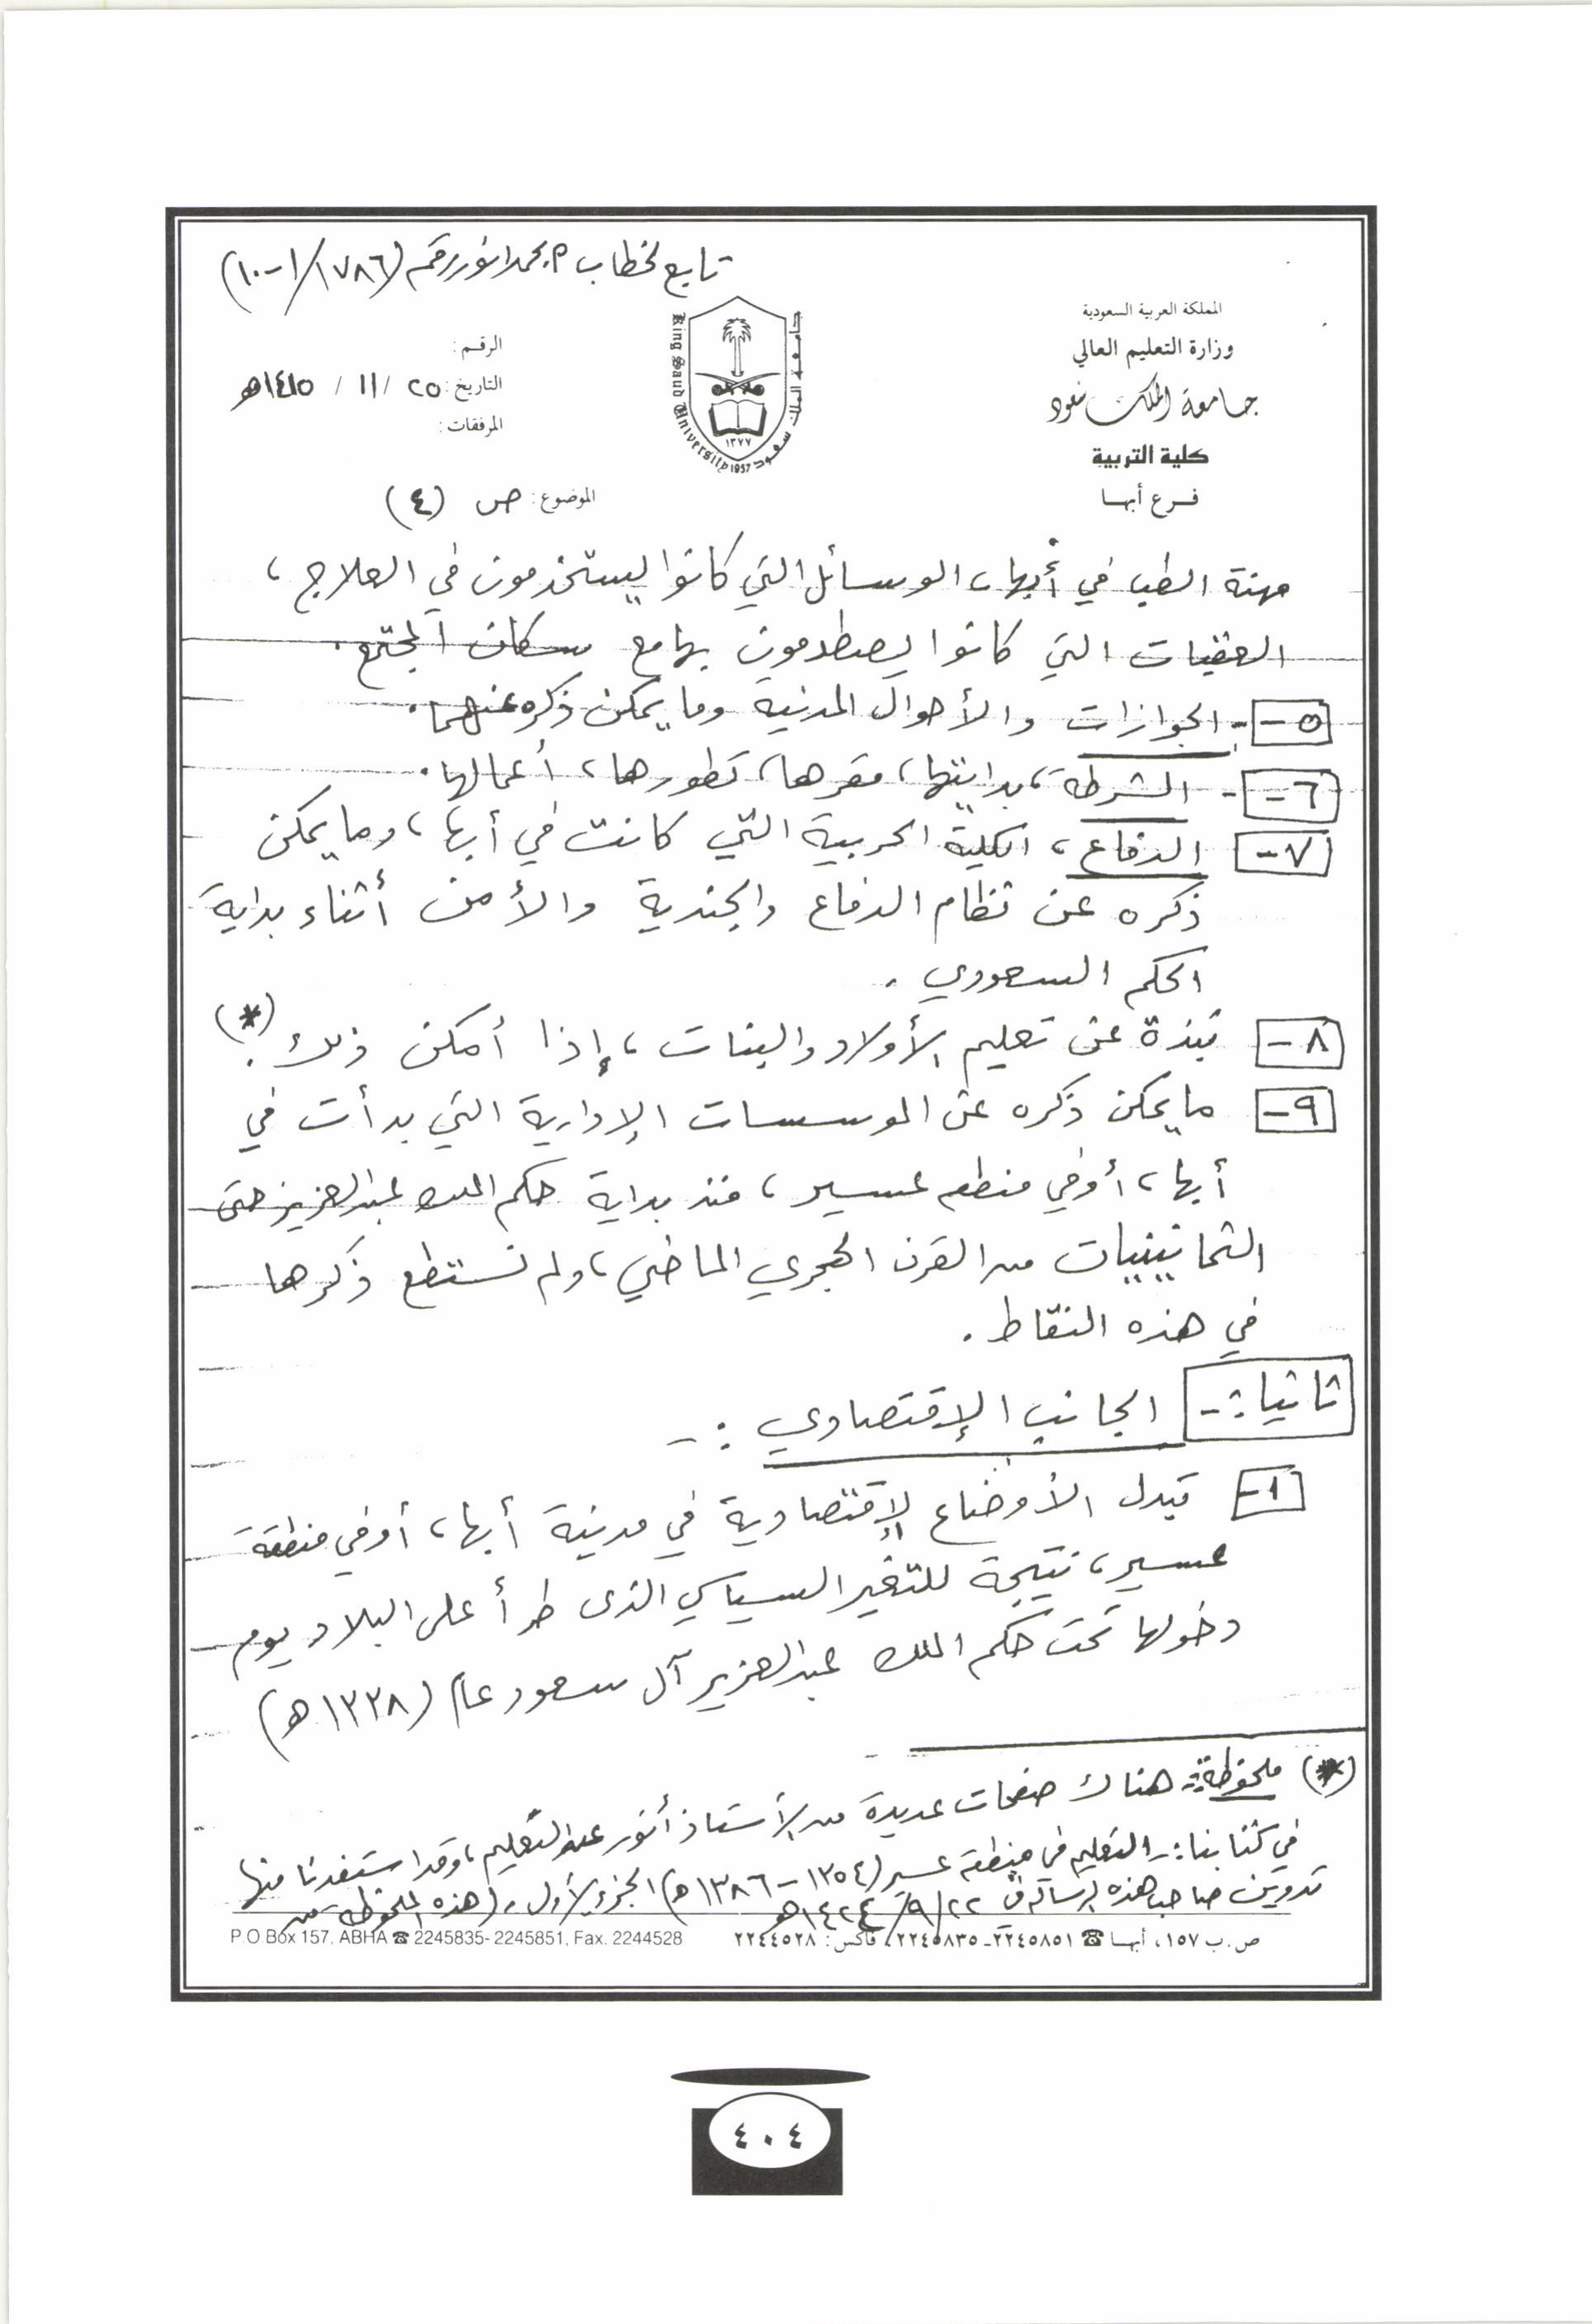 تابع لخطاب م. محمد انور رقم (١٧٨٦/١-١٠)
المملكة العربية السعودية
وزارة التعليم العالي
جامعة الملك سعود
كلية التربية
فرع أبها
جامعة الملك سعود
King Saud University 1957
١٣٧٧
الرقم:
التاريخ: ٢٥ / ١١ / ١٤١٥هـ
المرفقات:
الموضوع: ص (٤)
مهنة الطب في أبها، الوسائل التي كانوا يستخدمون في العلاج،
العقبات التي كانوا يصطدمون بها مع سكان المجتمع.
٥- الجوازات والأحوال المدنية وما يمكن ذكره عنهما.
٦- الشرطة، بدايتها، مقرها، تطورها، أعمالها.
٧- الدفاع، الكلية الحربية التي كانت في أبها، وما يمكن
ذكره عن نظام الدفاع والجندية والأمن أثناء بداية
الحكم السعودي.
٨- نبذة عن تعليم الأولاد والبنات، إذا أمكن ذلك. (*)
٩- ما يمكن ذكره عن الموسسات الإدارية التي بدأت في
أبها، أو في منطقة عسير، منذ بداية حكم الملك عبدالعزيز حتى
الثمانينيات من القرن الهجري الماضي، ولم نستطع ذكرها
في هذه النقاط.
ثانيا:- الجانب الإقتصادي :-
١- تبدل الأوضاع الإقتصادية في مدينة أبها، أو في منطقة
عسير، نتيجة للتغير السياسي الذى طرأ على البلاد يوم
دخولها تحت حكم الملك عبدالعزيز آل سعود عام (١٣٣٨هـ)
(*) ملحوظة:- هناك صفحات عديدة من الأستاذ أنور عن التعليم، وقد استفدنا منها
في كتابنا:- التعليم في منطقة عسير (١٣٥٤-١٣٨٦هـ) الجزء الأول. (هذه الملحوظة من
تدوين صاحب هذه الرسالة في ٢٢/٩/١٤٢٤هـ
P O Box 157, ABHA ☎ 2245835- 2245851, Fax. 2244528
ص.ب ١٥٧، أبها ☎ ٢٢٤٥٨٥١-٢٢٤٥٨٣٥، فاكس: ٢٢٤٤٥٢٨
٤٠٤